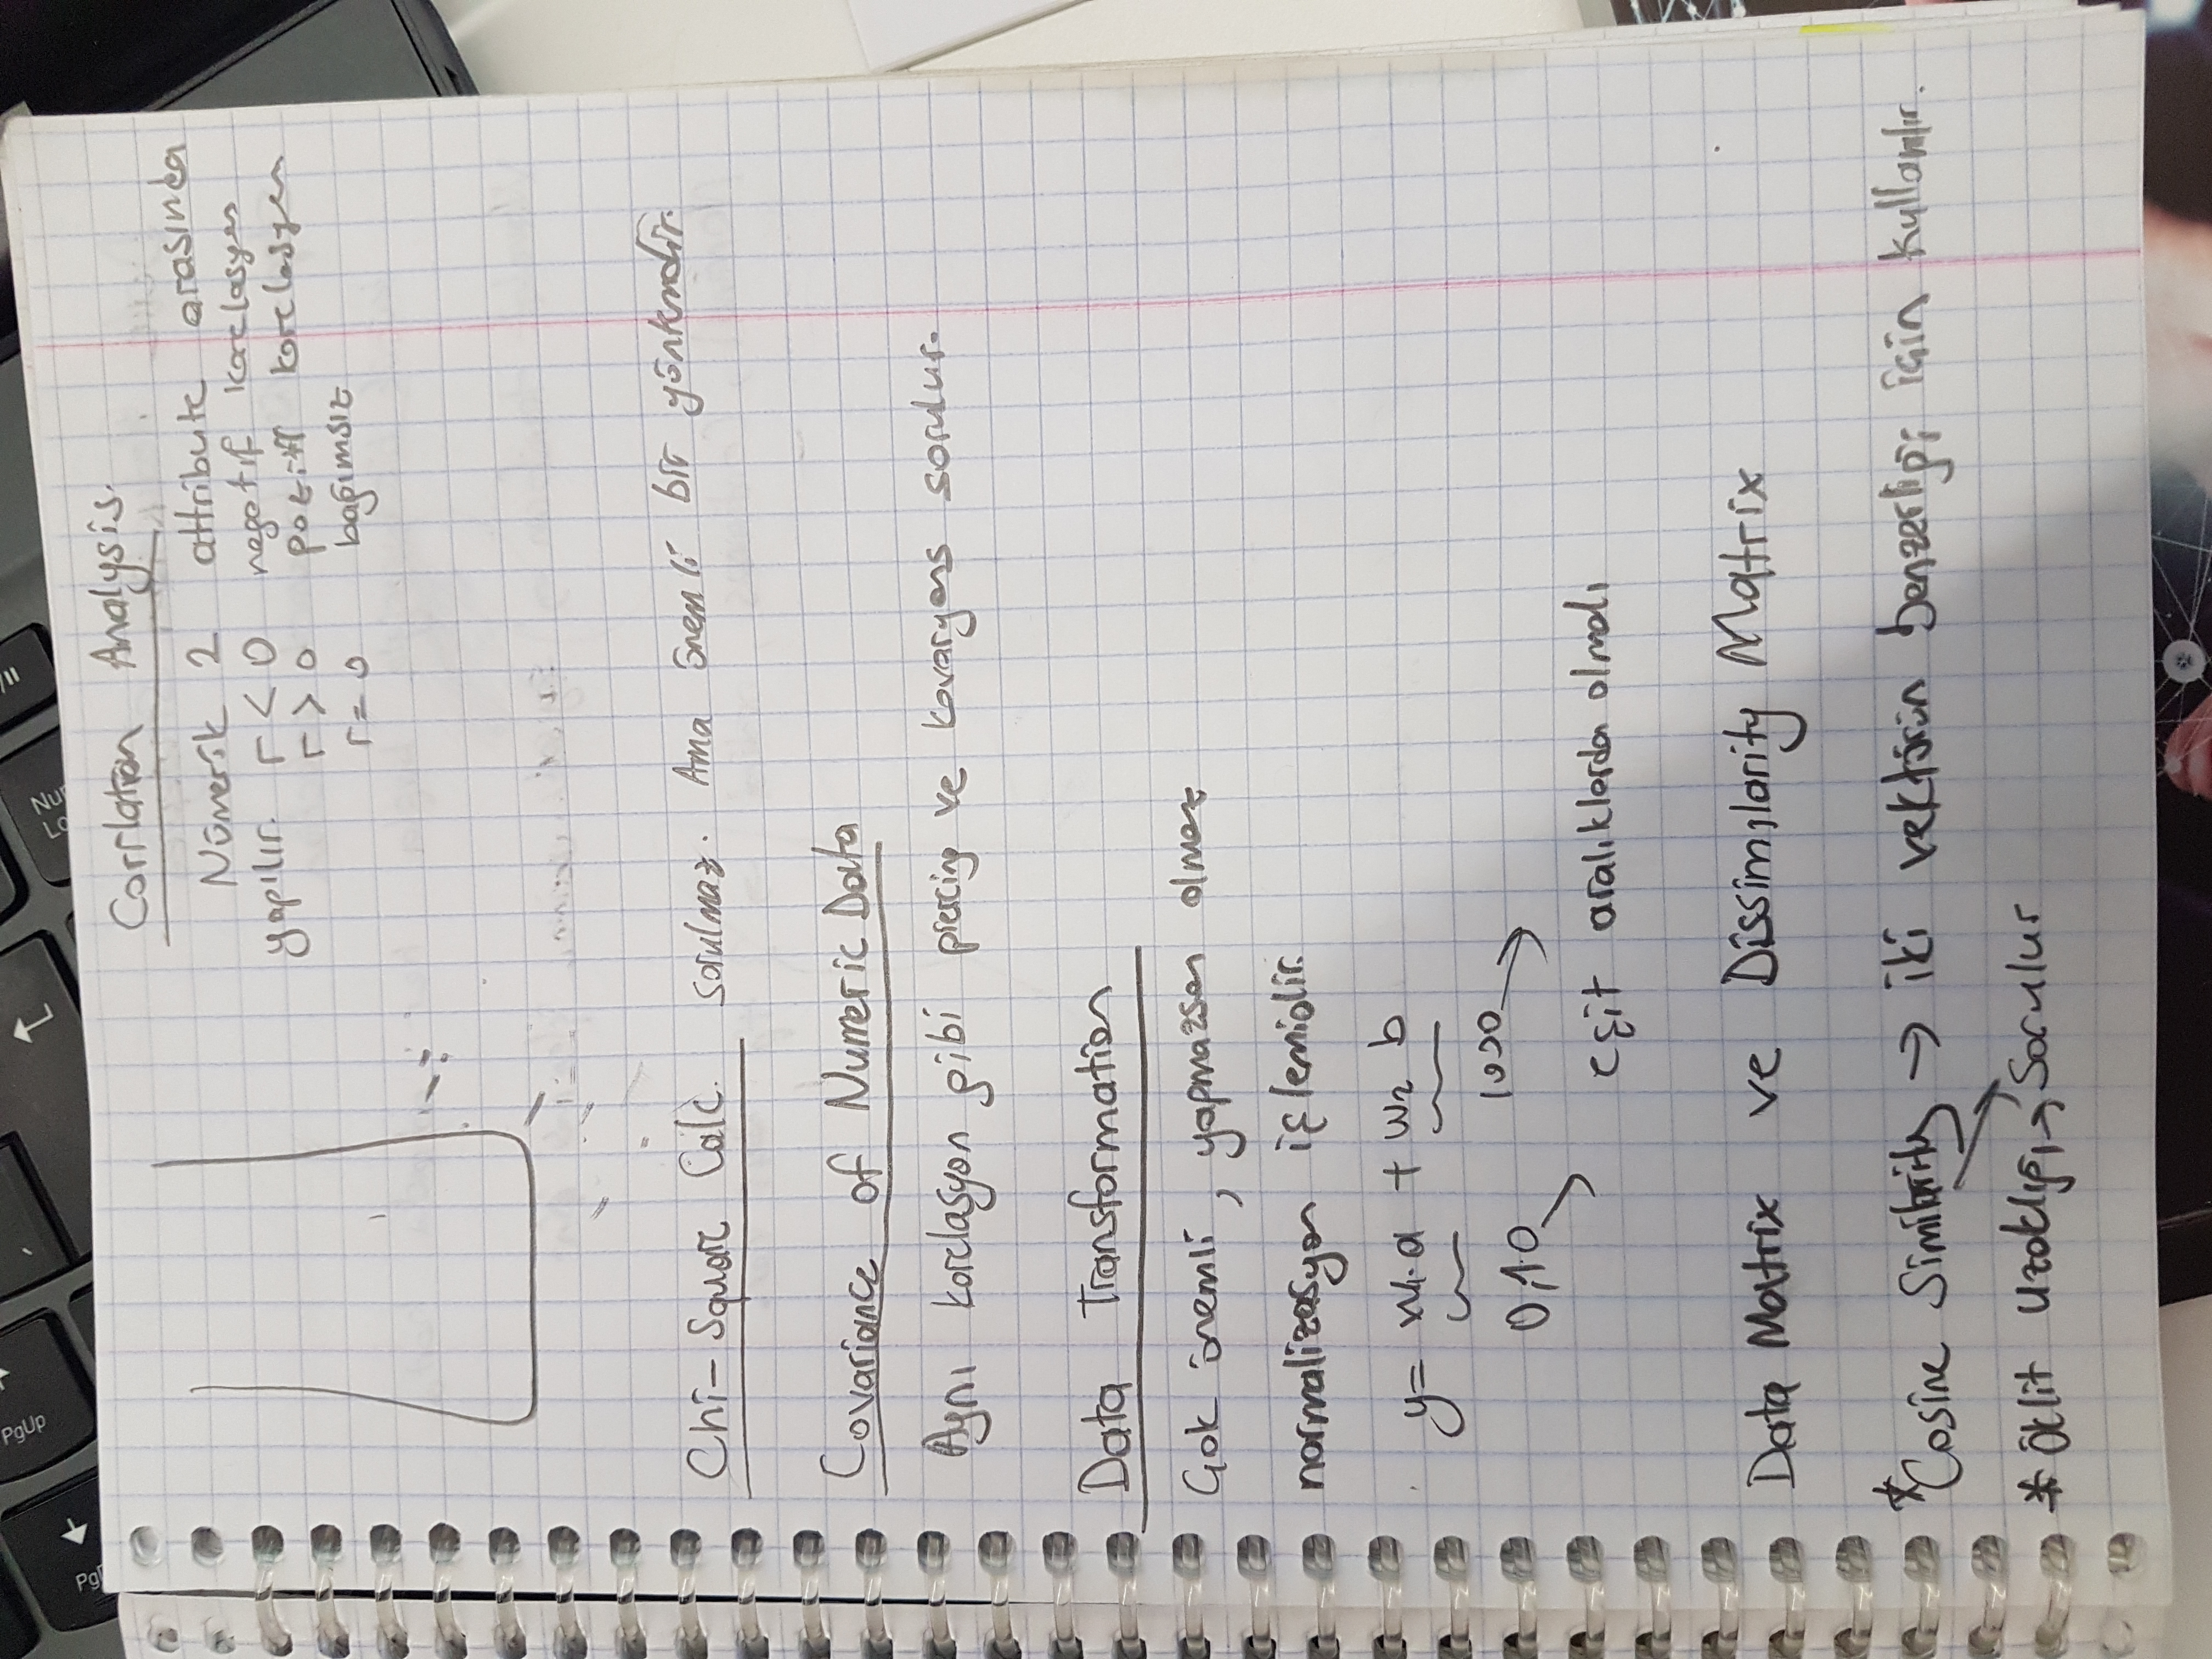 PgUp
Corrlation Analysis.
Nümerik 2 attribute arasında
yapılır. r < 0 negatif korelasyon
r > 0 pozitif korelasyon
r = 0 bağımsız
Chi-Square Calc. sorulmaz. Ama önemli bir yöntemdir.
Covariance of Numeric Data
Aynı korelasyon gibi piercing ve kovaryans sorulur.
Data Transformation
Çok önemli, yapmazsan olmaz
normalizasyon işlemidir.
y = w1.a + w2 b
0,10 1000
eşit aralıklarda olmalı
Data Matrix ve Dissimilarity Matrix
*Cosine Similarity → iki vektörün benzerliği için kullanılır.
* Öklit uzaklığı → Sorulur